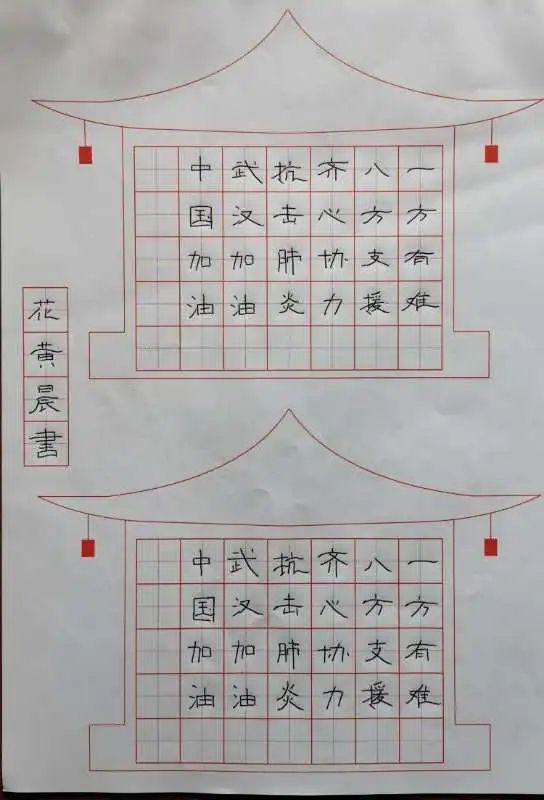 一方有难
八方支援
齐心协力
抗击肺炎
武汉加油
中国加油
一方有难
八方支援
齐心协力
抗击肺炎
武汉加油
中国加油
花黄晨書